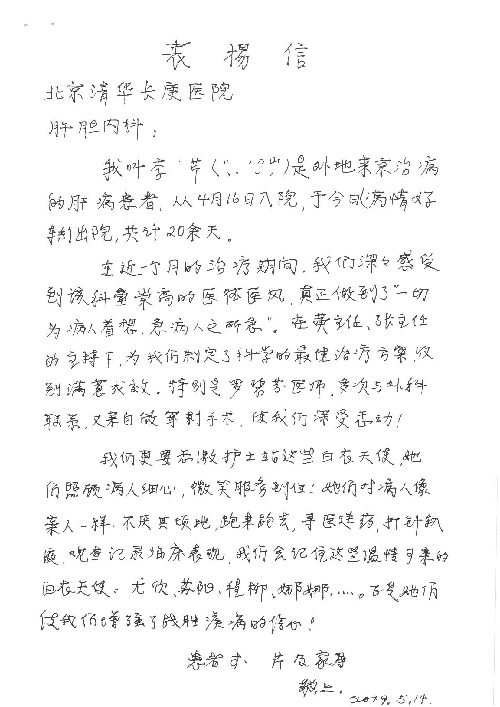 表扬信
北京清华长庚医院
肝胆内科：
我叫李 芹( )是外地来京治病
的肝病患者，从4月16日入院，于今日病情好
转出院，共计20余天。
在近一个月的治疗期间，我们深深感受
到该科室崇高的医德医风，真正做到了“一切
为病人着想，急病人之所急”。在黄主任、张主任
的主持下，为我们制定了科学的最佳治疗方案，收
到满意成效。特别是罗 医师，多次与外科
联系，又亲自做穿刺手术，使我们深受感动！
我们更要感激护士站这些白衣天使，她
们照顾病人细心，微笑服务到位！她们对病人像
亲人一样，不厌其烦地，跑来跑去，寻医送药，打针抽
血，观查记录临床表现，我们会记住这些温情可来的
白衣天使。尤欣、苏阳、程柳、娜娜.....。正是她们
使我们增强了战胜疾病的信心！
患者李 芹及家属
敬上.
2019.5.14.